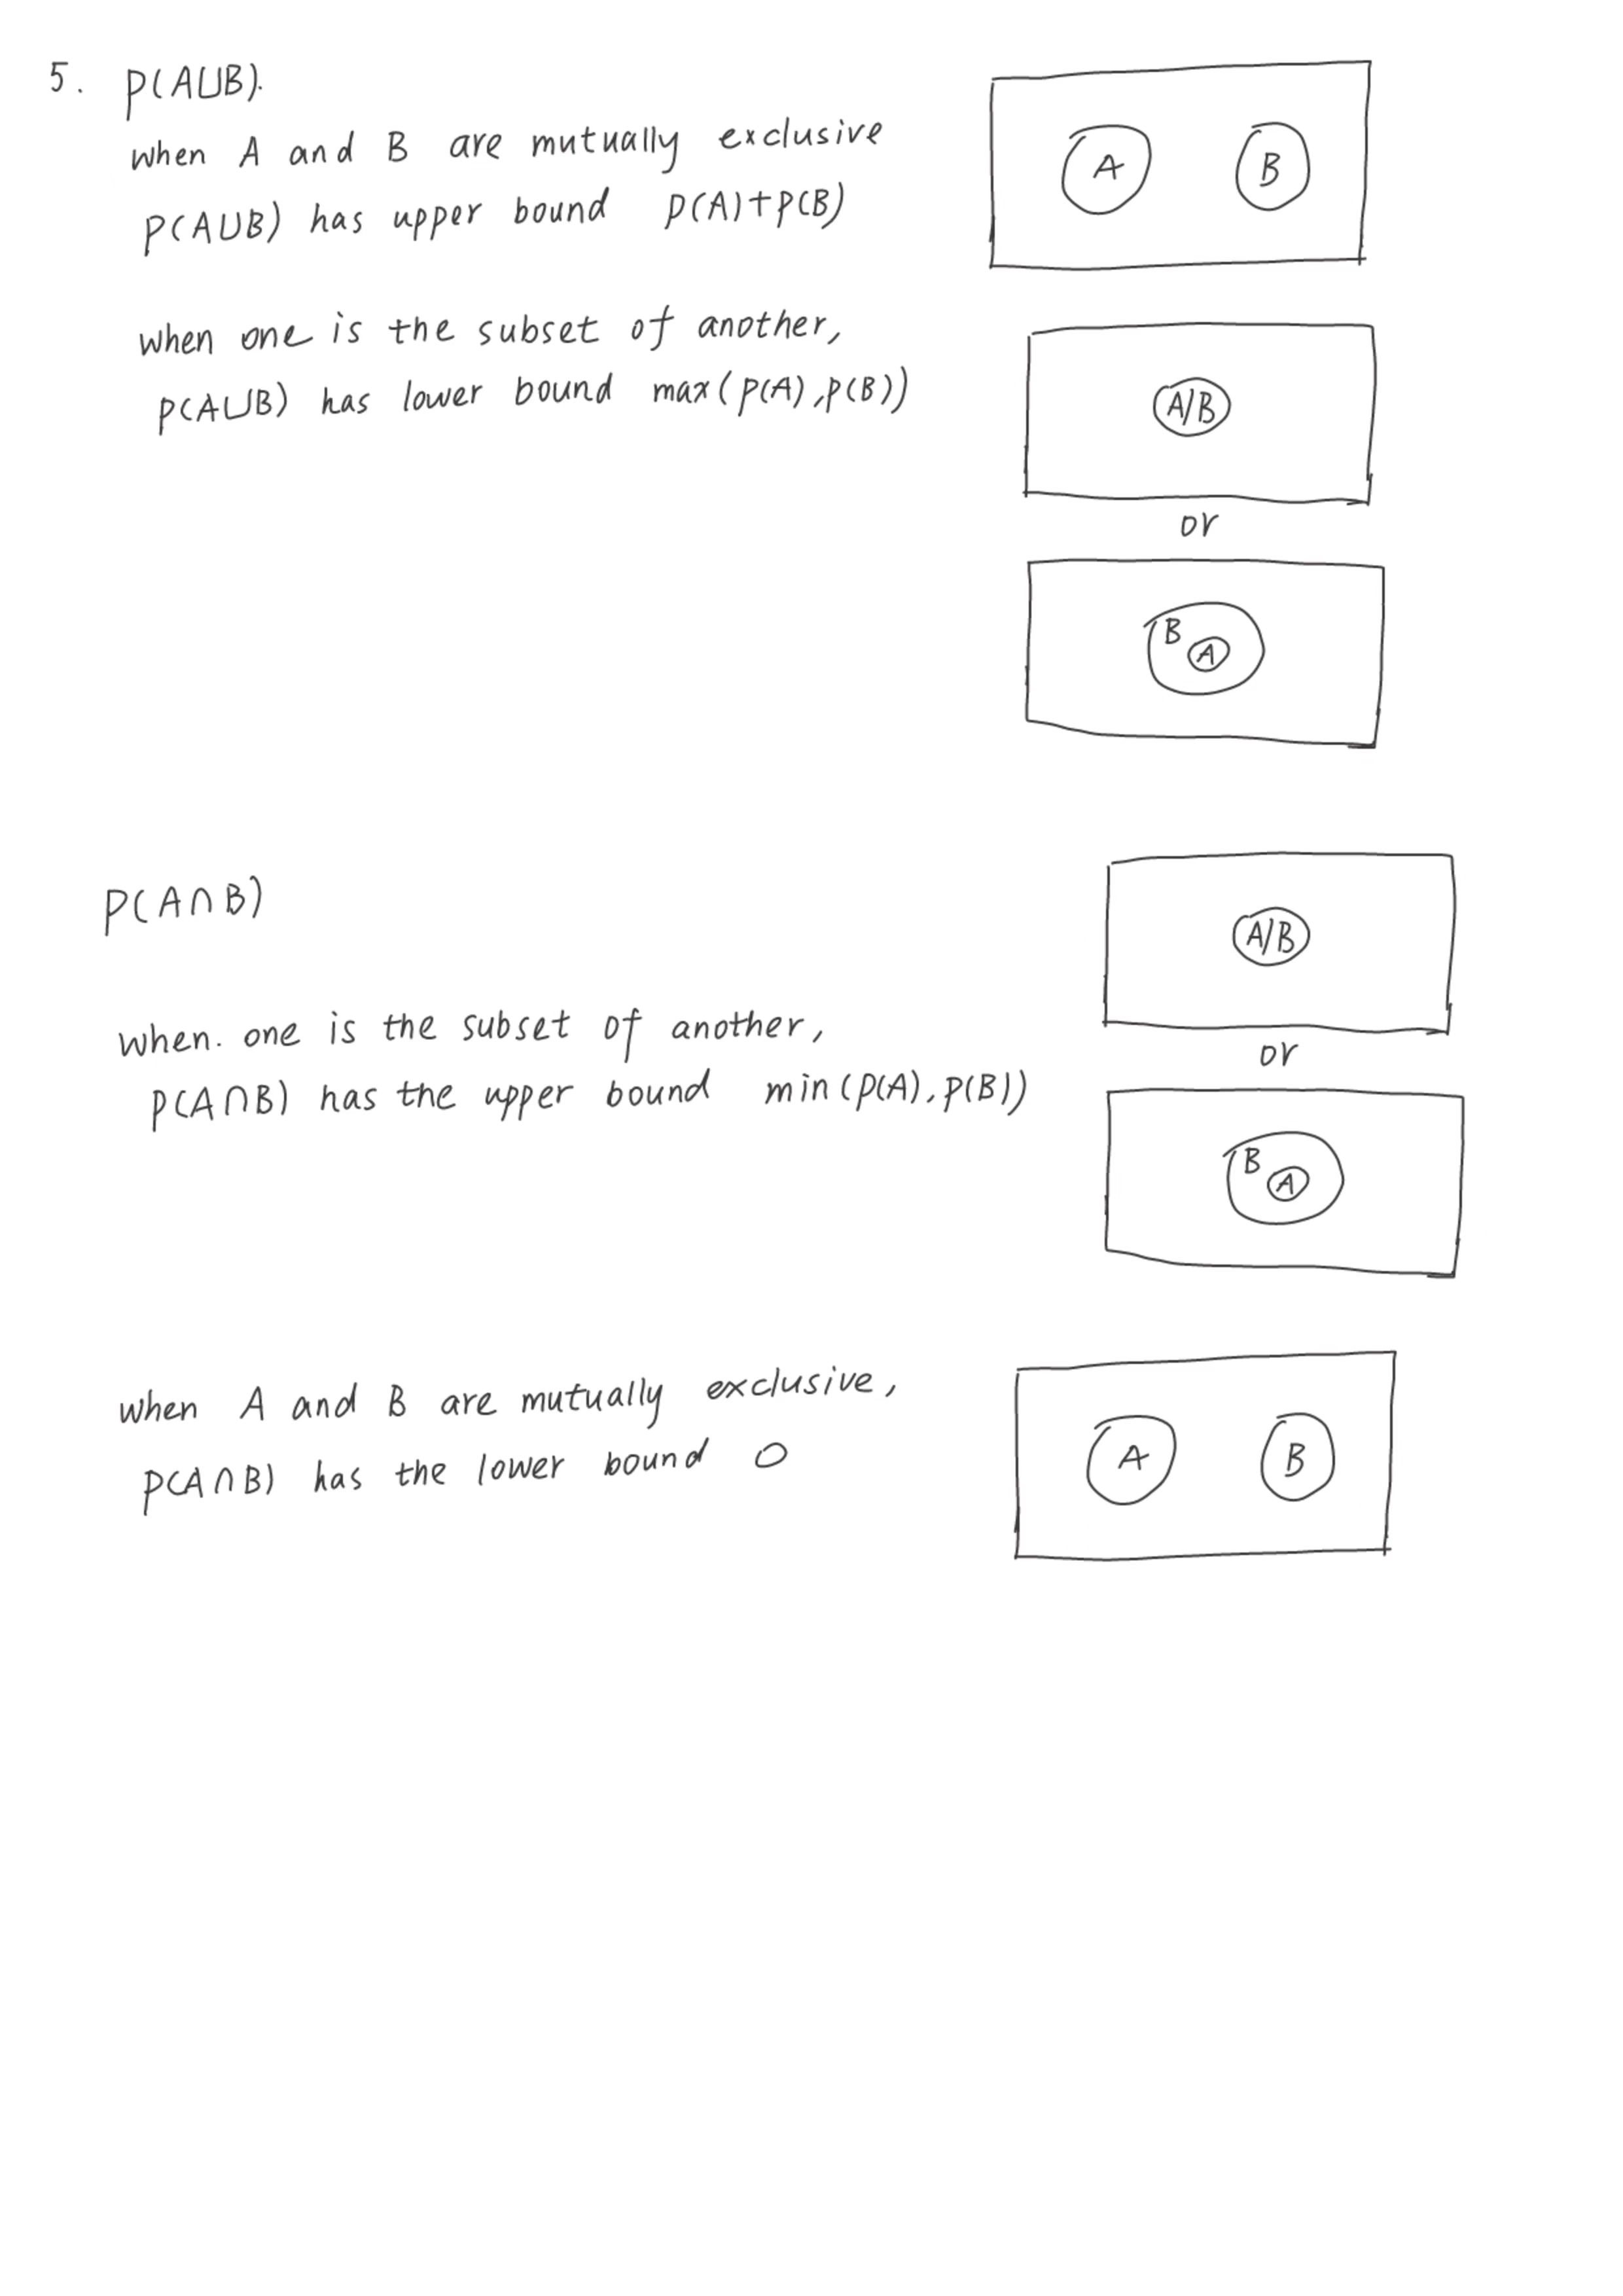 5. P(A∪B).
when A and B are mutually exclusive
P(A∪B) has upper bound P(A)+P(B)
A B
when one is the subset of another,
P(A∪B) has lower bound max(P(A),P(B))
A/B
or
B A
P(A∩B)
A/B
or
when. one is the subset of another,
P(A∩B) has the upper bound min(P(A),P(B))
B A
when A and B are mutually exclusive,
P(A∩B) has the lower bound 0
A B